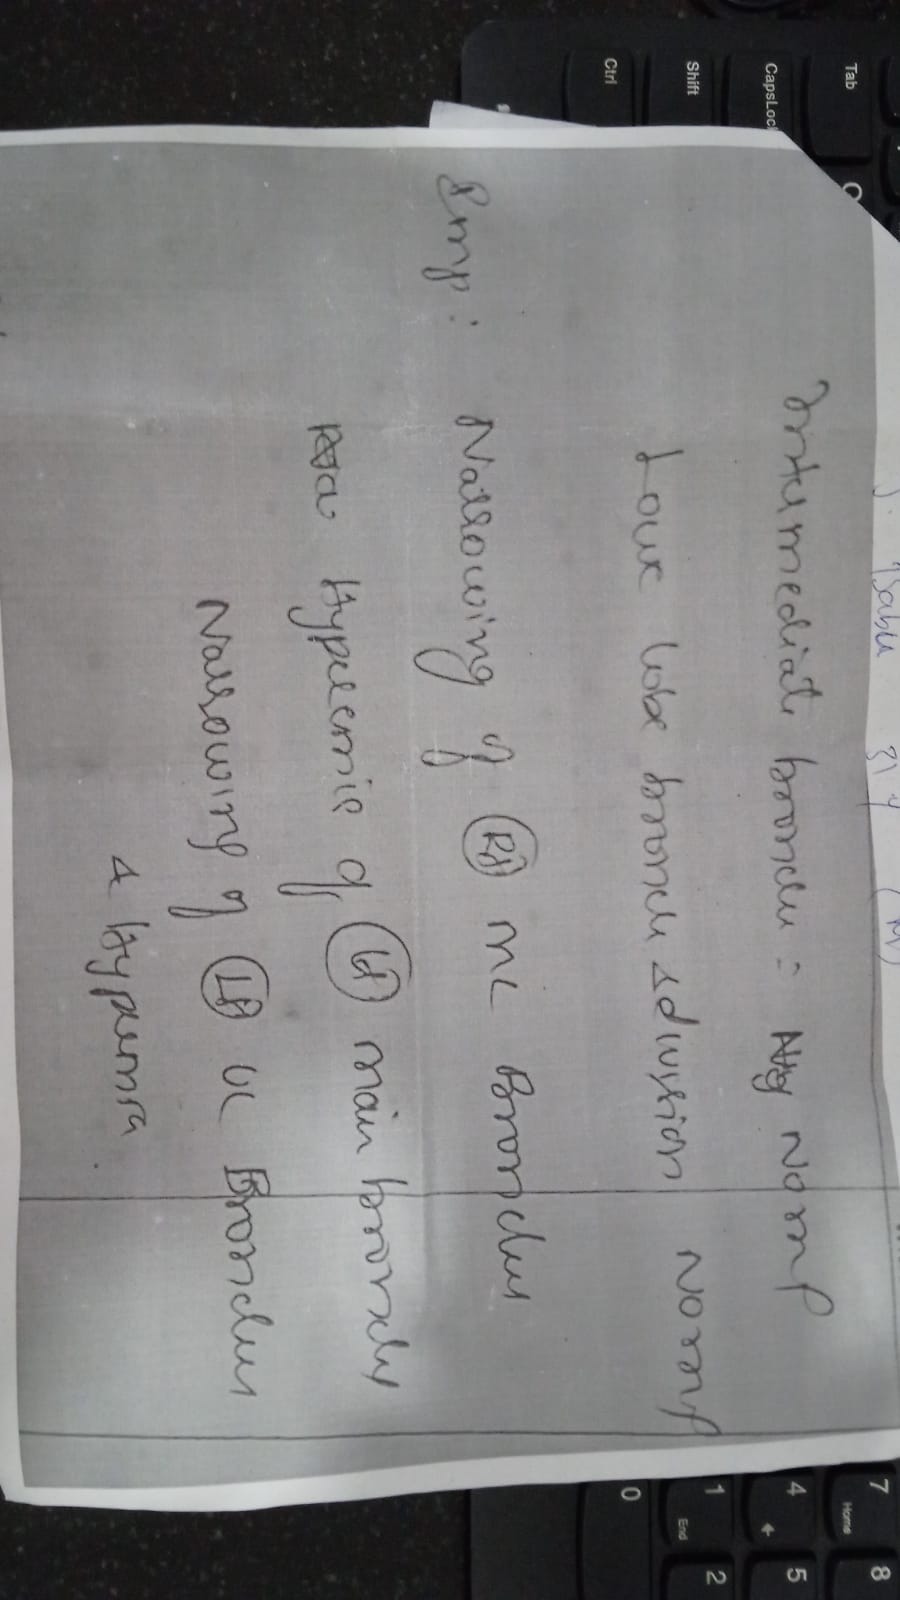 Babu 31 y (M)
Intermediate bronchus = Normal
Lower lobe bronchus & division Normal
Imp: Narrowing of (Rt) ML Bronchus
Hyperemic of (Lt) main bronchus
Narrowing of (Lt) UL Bronchus
& Hyperemia
Tab
CapsLock
Shift
Ctrl
7 Home 8
4 5
1 End 2
0